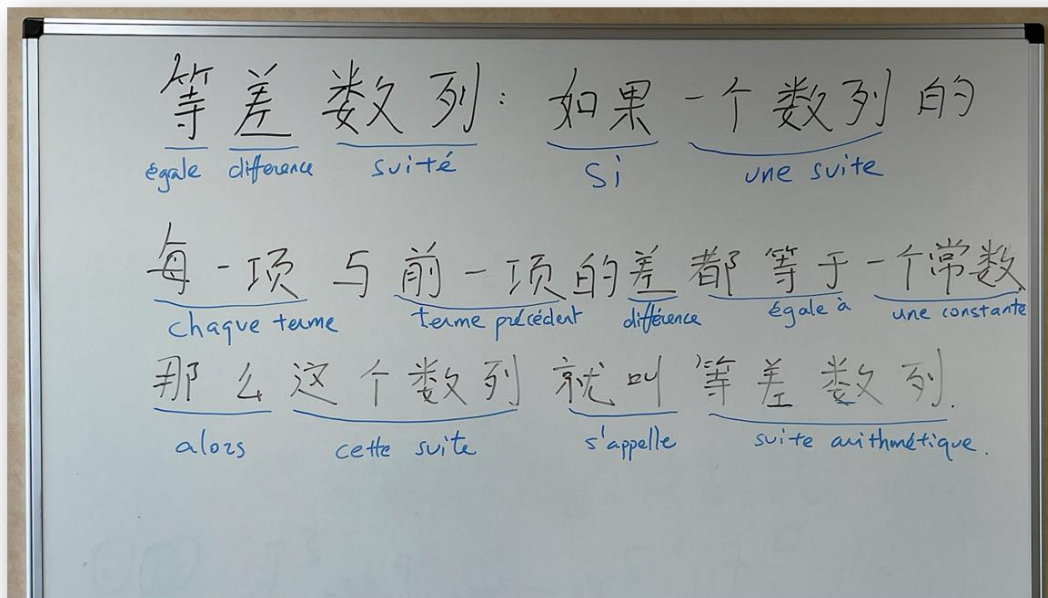 等差数列：如果一个数列的
égale difference suité si une suite
每一项与前一项的差都等于一个常数
chaque terme terme précédent différence égale à une constante
那么这个数列就叫等差数列.
alors cette suite s'appelle suite arithmétique.